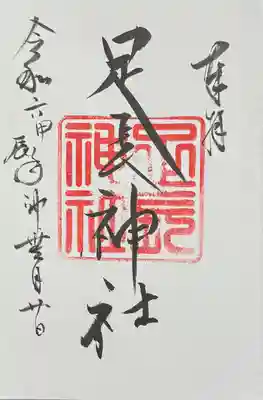 奉拝
足長神社
令和六甲辰年神無月廿日